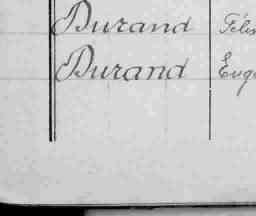 Durand Féli
Durand Eug